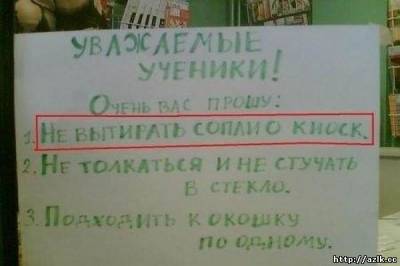 УВАЖАЕМЫЕ
УЧЕНИКИ!
ОЧЕНЬ ВАС ПРОШУ:
1. НЕ ВЫТИРАТЬ СОПЛИ О КИОСК.
2. НЕ ТОЛКАТЬСЯ И НЕ СТУЧАТЬ
В СТЕКЛО.
3. ПОДХОДИТЬ К ОКОШКУ
ПО ОДНОМУ.
http://azlk.ee